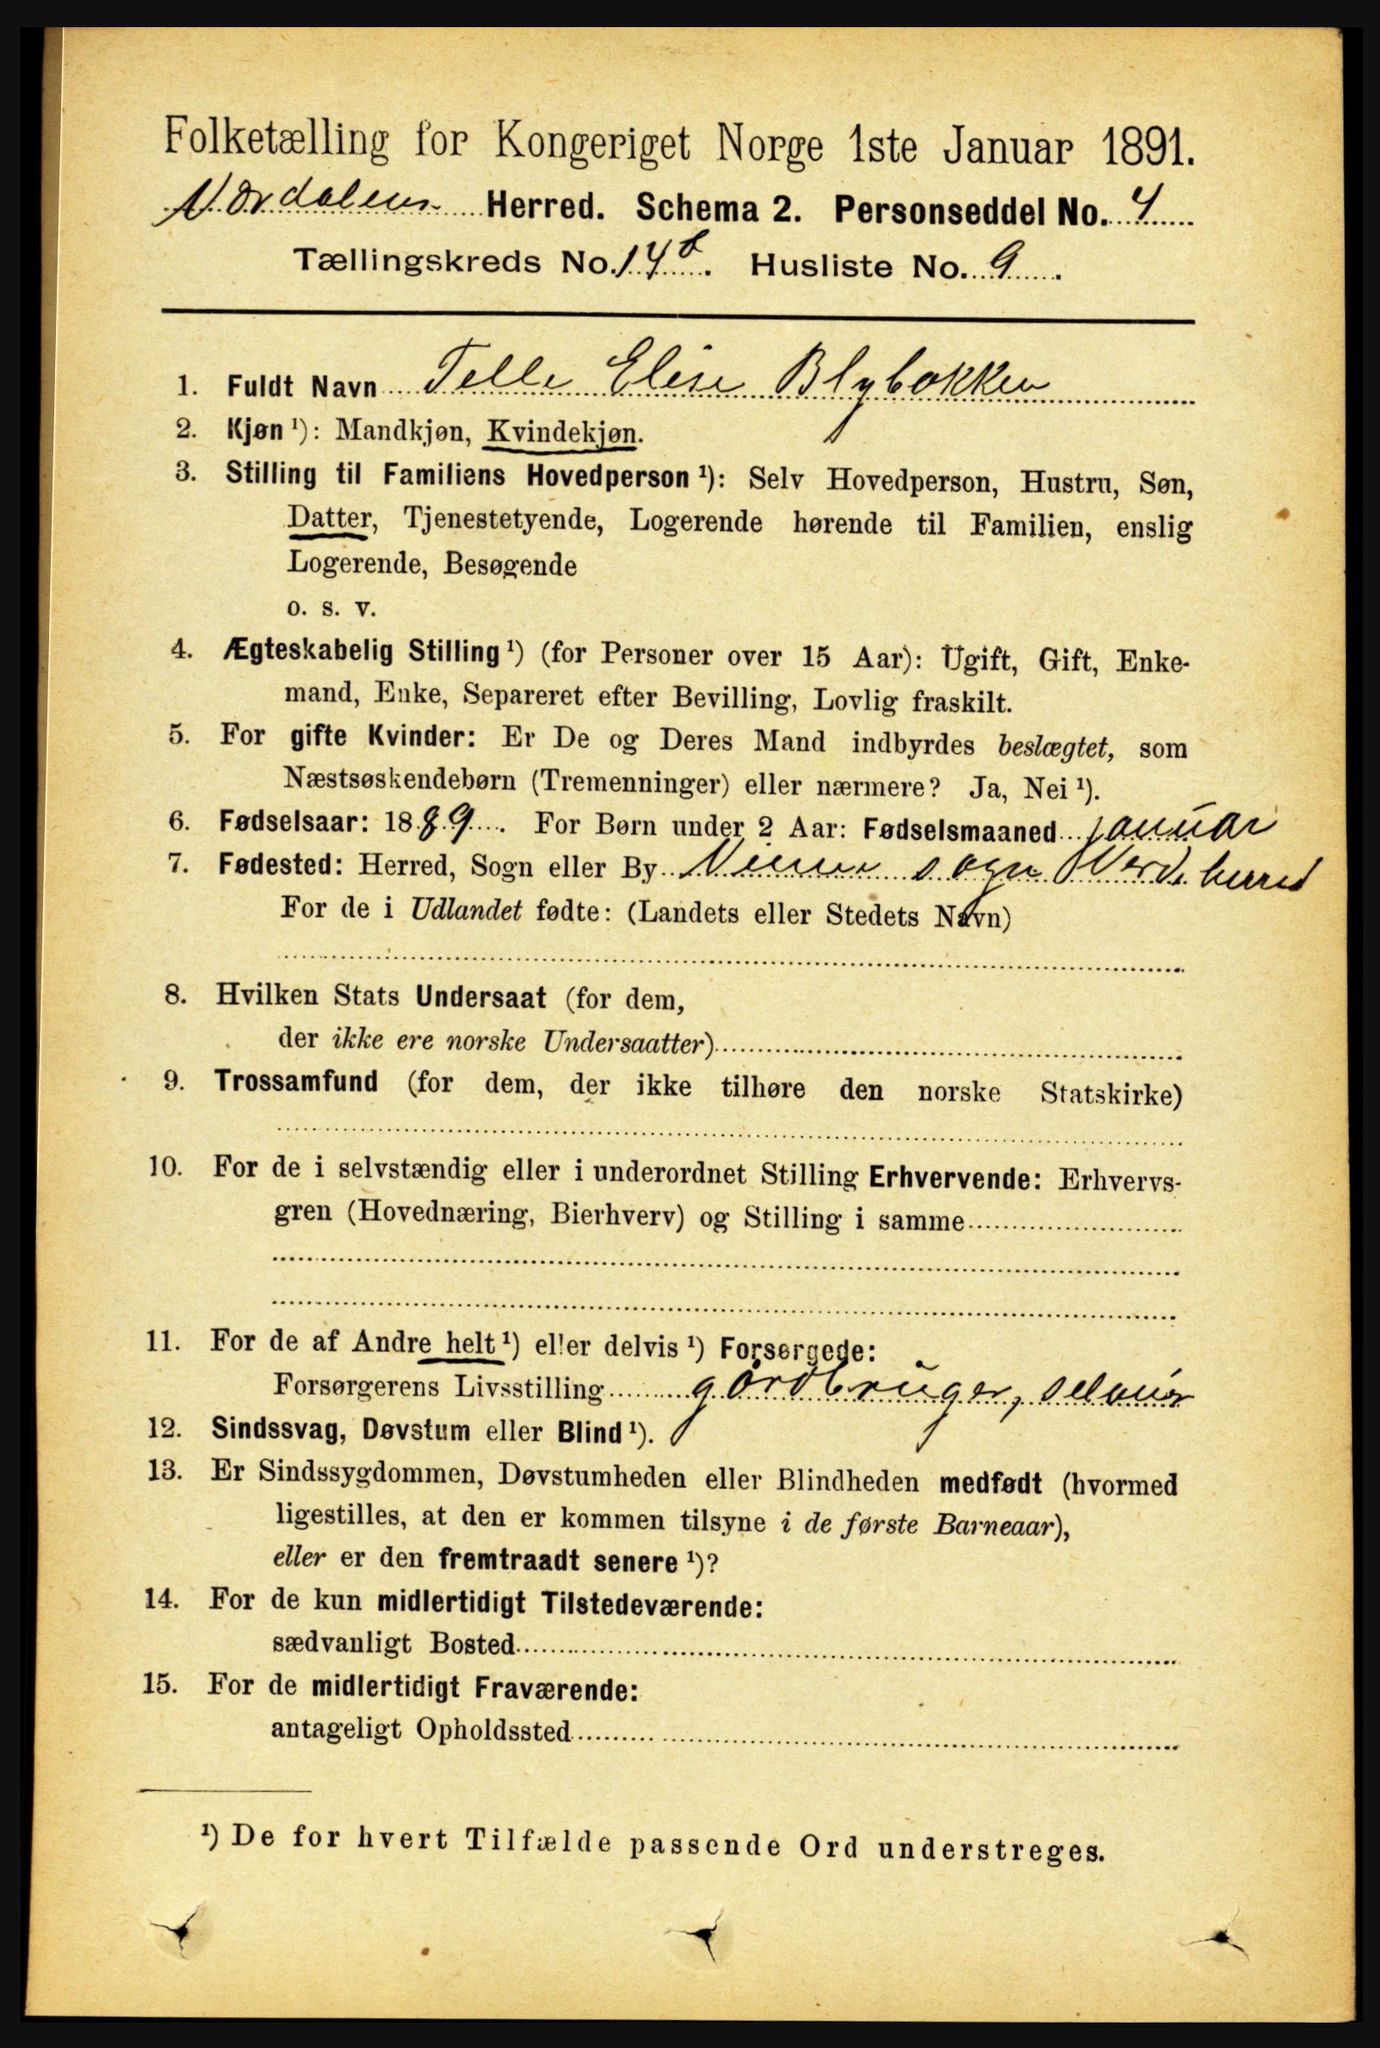 Folketælling for Kongeriget Norge 1ste Januar 1891.
Nordalens Herred. Schema 2. Personseddel No. 4
Tællingskreds No. 14 b. Husliste No. 9.
1. Fuldt Navn Pelle Elise Blybakken
2. Kjøn ¹): Mandkjøn, Kvindekjøn.
3. Stilling til Familiens Hovedperson ¹): Selv Hovedperson, Hustru, Søn,
Datter, Tjenestetyende, Logerende hørende til Familien, enslig
Logerende, Besøgende
o. s. v.
4. Ægteskabelig Stilling ¹) (for Personer over 15 Aar): Ugift, Gift, Enke-
mand, Enke, Separeret efter Bevilling, Lovlig fraskilt.
5. For gifte Kvinder: Er De og Deres Mand indbyrdes beslægtet, som
Næstsøskendebørn (Tremenninger) eller nærmere? Ja, Nei ¹).
6. Fødselsaar: 1889. For Børn under 2 Aar: Fødselsmaaned januar
7. Fødested: Herred, Sogn eller By sogn herred
For de i Udlandet fødte: (Landets eller Stedets Navn)
8. Hvilken Stats Undersaat (for dem,
der ikke ere norske Undersaatter)
9. Trossamfund (for dem, der ikke tilhøre den norske Statskirke)
10. For de i selvstændig eller i underordnet Stilling Erhvervende: Erhvervs-
gren (Hovednæring, Bierhverv) og Stilling i samme
11. For de af Andre helt ¹) eller delvis ¹) Forsørgede:
Forsørgerens Livsstilling gårdbruger, selveier
12. Sindssvag, Døvstum eller Blind ¹).
13. Er Sindssygdommen, Døvstumheden eller Blindheden medfødt (hvormed
ligestilles, at den er kommen tilsyne i de første Barneaar),
eller er den fremtraadt senere ¹)?
14. For de kun midlertidigt Tilstedeværende:
sædvanligt Bosted
15. For de midlertidigt Fraværende:
antageligt Opholdssted
¹) De for hvert Tilfælde passende Ord understreges.